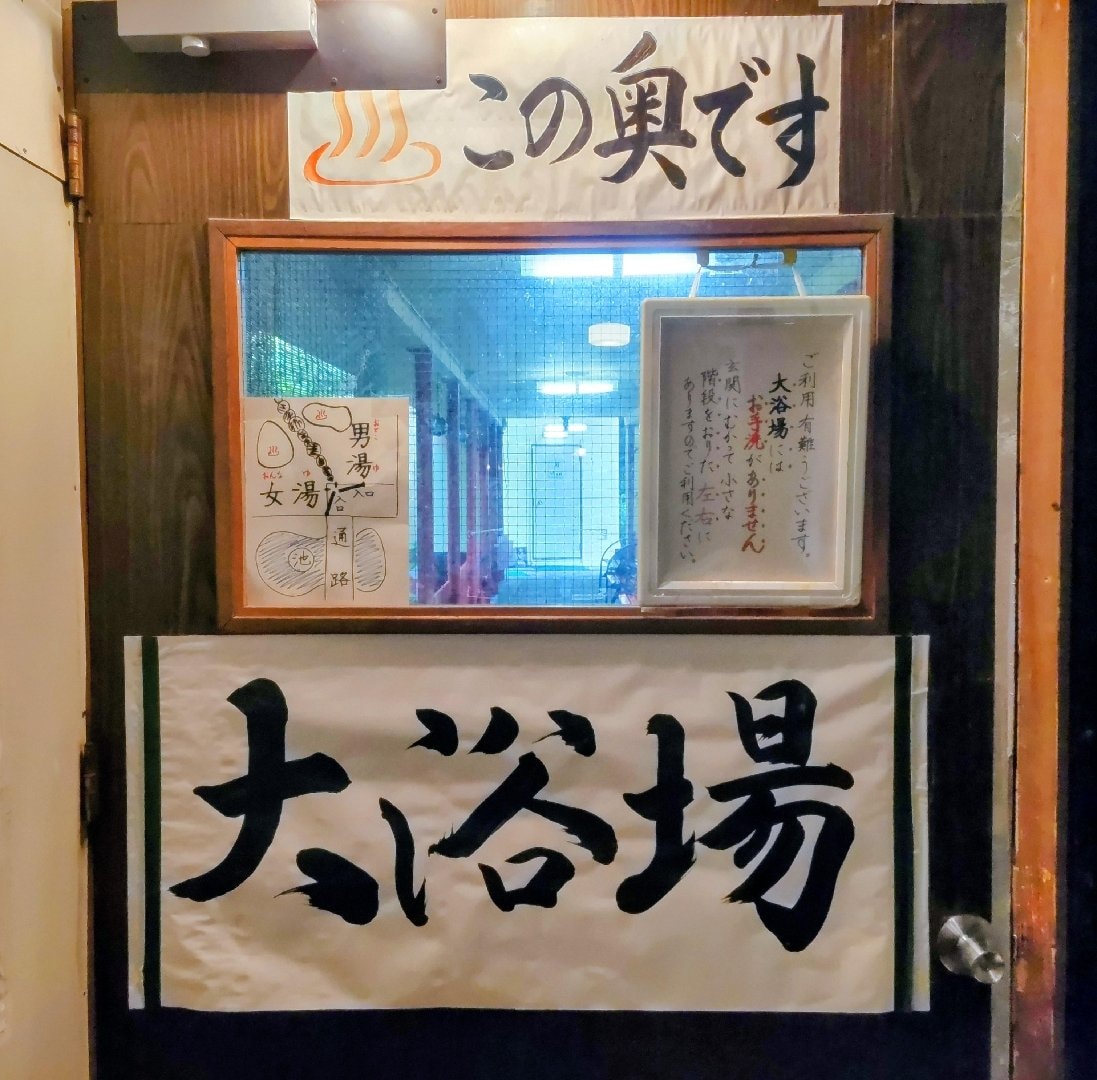 この奥です
ご利用有難うございます。
大浴場には
お手洗がありません
玄関にむかって小さな
階段をおりた左右に
ありますのでご利用ください。
おとこ ゆ
男湯
おんな ゆ
女湯
入口
通路
池
大浴場